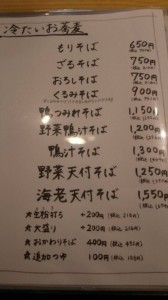 冷たいお蕎麦
もりそば 650円
ざるそば 750円
おろしそば 750円
くるみそば 900円
鴨つみれそば 1,150円
野菜鴨汁そば 1,200円
鴨汁そば 1,300円
野菜天付そば 1,250円
海老天付そば 1,550円
打ち +200円
大盛り +200円
おかわりそば 400円
追加つゆ 100円